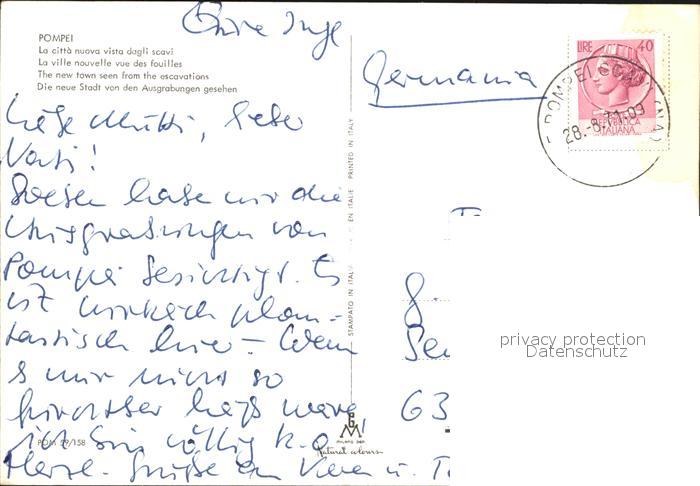 Eure Inge
POMPEI
La città nuova vista dagli scavi
La ville nouvelle vue des fouilles
The new town seen from the escavations
Die neue Stadt von den Ausgrabungen gesehen
Liebe Mutti, lieber
Vati!
Soeben habe wir die
Ausgrabungen von
Pompei besichtigt. Es
ist wirklich phan-
tastisch hier – Wenn
s nur nicht so
furchtbar heiß wäre!
ich bin völlig k.o.
Herzl. Grüße an u.
POM 29/158
STAMPATO IN ITALIA
EN ITALIE PRINTED IN ITALY
MILANO
Natural colours
Germania
LIRE 40
REPVBBLICA
ITALIANA
POMPEI SCAVI (NA)
28.-8.71.09
63
privacy protection
Datenschutz